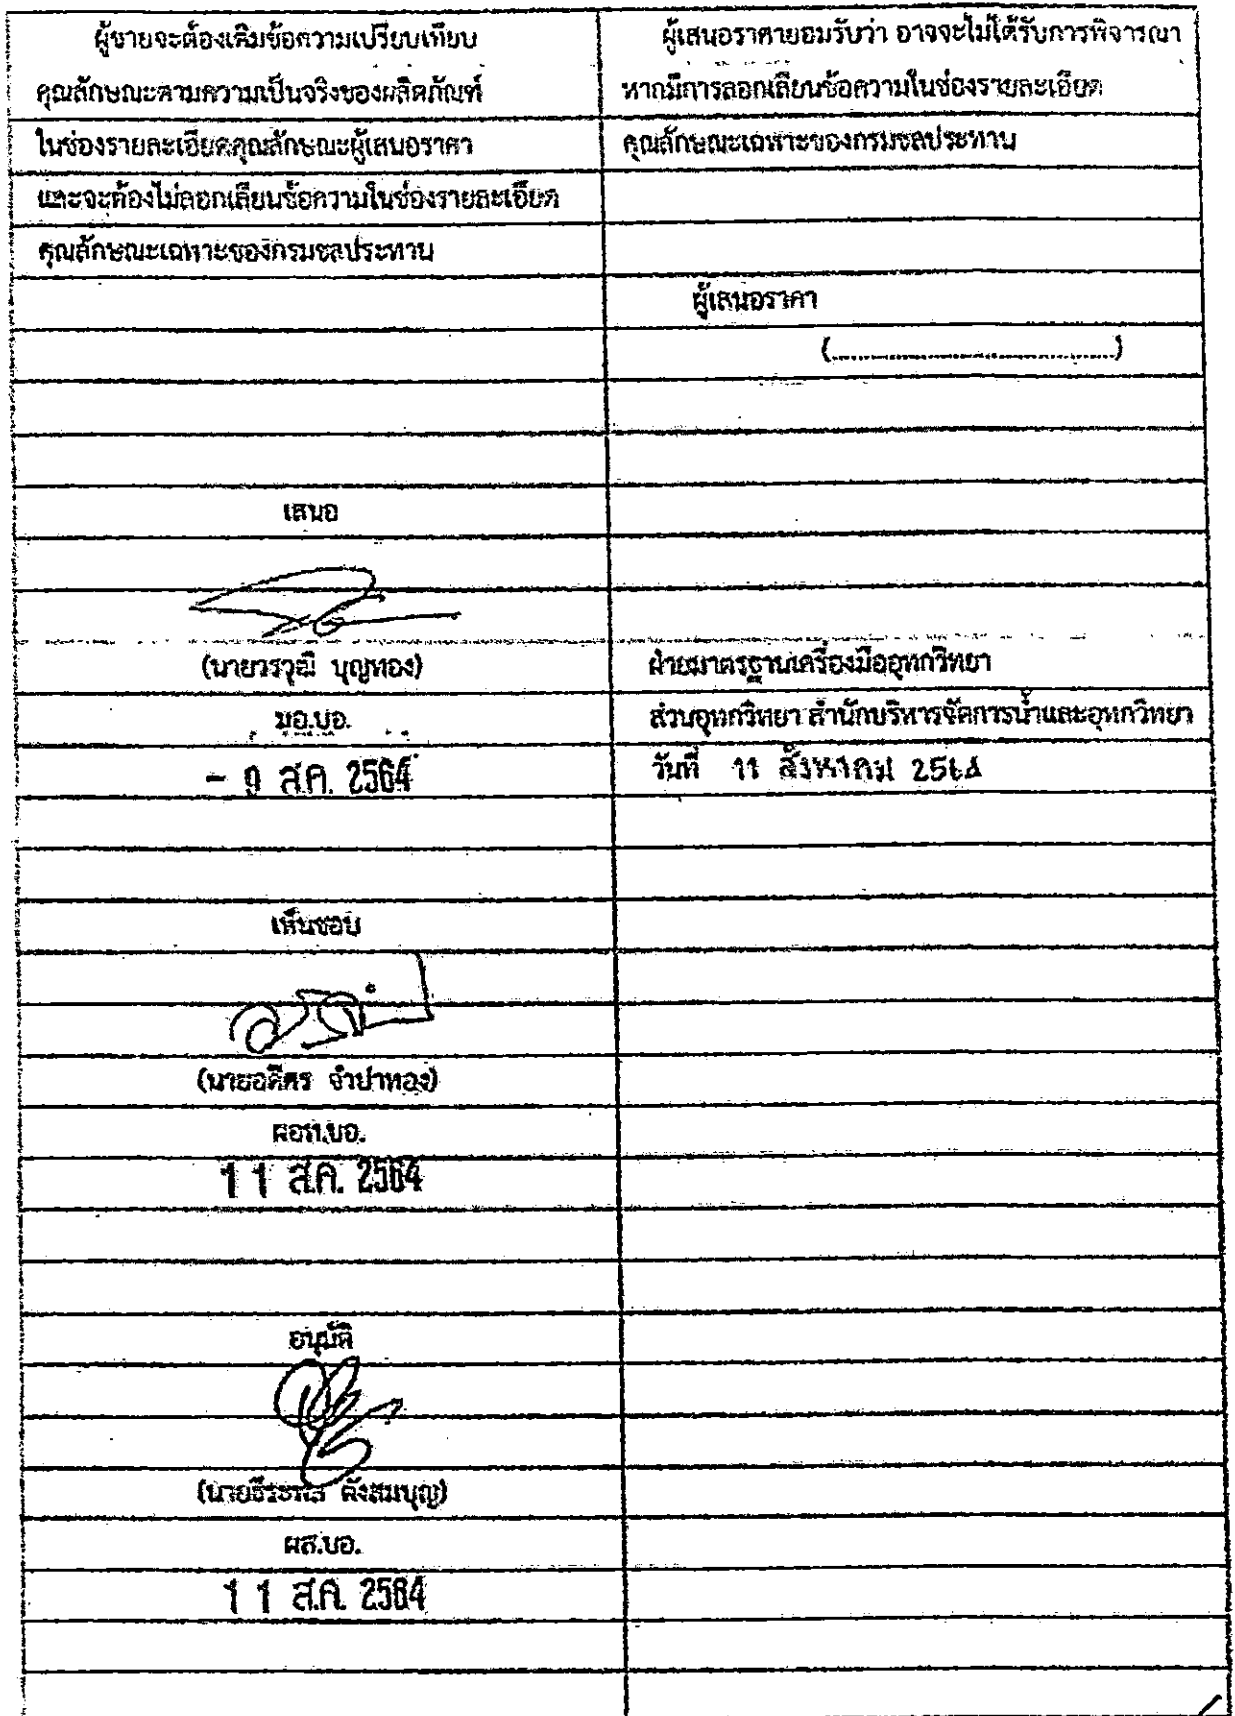 ผู้ขายจะต้องเติมข้อความเปรียบเทียบ
คุณลักษณะตามความเป็นจริงของผลิตภัณฑ์
ในช่องรายละเอียดคุณลักษณะผู้เสนอราคา
และจะต้องไม่ลอกเลียนข้อความในช่องรายละเอียด
คุณลักษณะเฉพาะของกรมชลประทาน
เสนอ
(นายวรวุฒิ บุญทอง)
มอ.บอ.
- 9 ส.ค. 2564
เห็นชอบ
(นายอดิศร จำปาทอง)
ผอท.บอ.
11 ส.ค. 2564
อนุมัติ
(นายธีระพล ตั้งสมบุญ)
ผส.บอ.
11 ส.ค. 2564
ผู้เสนอราคายอมรับว่า อาจจะไม่ได้รับการพิจารณา
หากมีการลอกเลียนข้อความในช่องรายละเอียด
คุณลักษณะเฉพาะของกรมชลประทาน
ผู้เสนอราคา
(..............................................)
ฝ่ายมาตรฐานเครื่องมืออุทกวิทยา
ส่วนอุทกวิทยา สำนักบริหารจัดการน้ำและอุทกวิทยา
วันที่ 11 สิงหาคม 2564